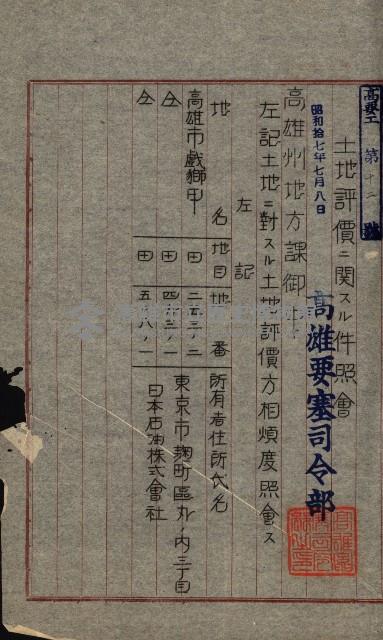 高要工 第十二號
土地評價ニ関スル件照會
昭和拾七年七月八日
高雄要塞司令部
高雄州地方課御
左記土地ニ對スル土地評價方相煩度照會ス
左記
地名 地目 地番 所有者住所氏名
高雄市戲獅甲 田 二五三ノ二 東京市麹町區丸ノ内三丁目
仝 田 四三ノ一 日本石油株式會社
仝 田 五八ノ一